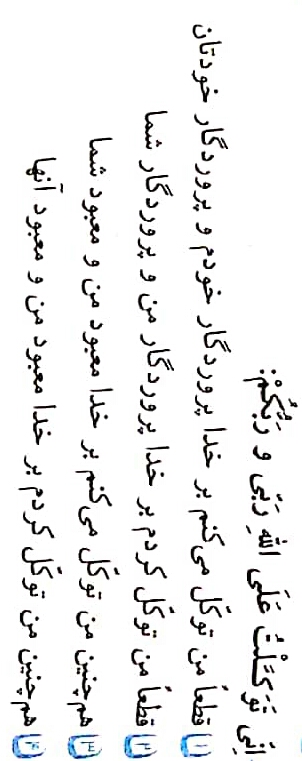 اِنّی تَوَکَّلْتُ عَلَی اللهِ رَبّی و رَبُّکُمْ:
۱) قطعاً من توکّل می‌کنم بر خدا پروردگار خودم و پروردگار خودتان
۲) قطعاً من توکّل کردم بر خدا پروردگار من و پروردگار شما
۳) هم‌چنین من توکّل می‌کنم بر خدا معبود من و معبود شما
۴) هم‌چنین من توکّل کردم بر خدا معبود من و معبود آنها